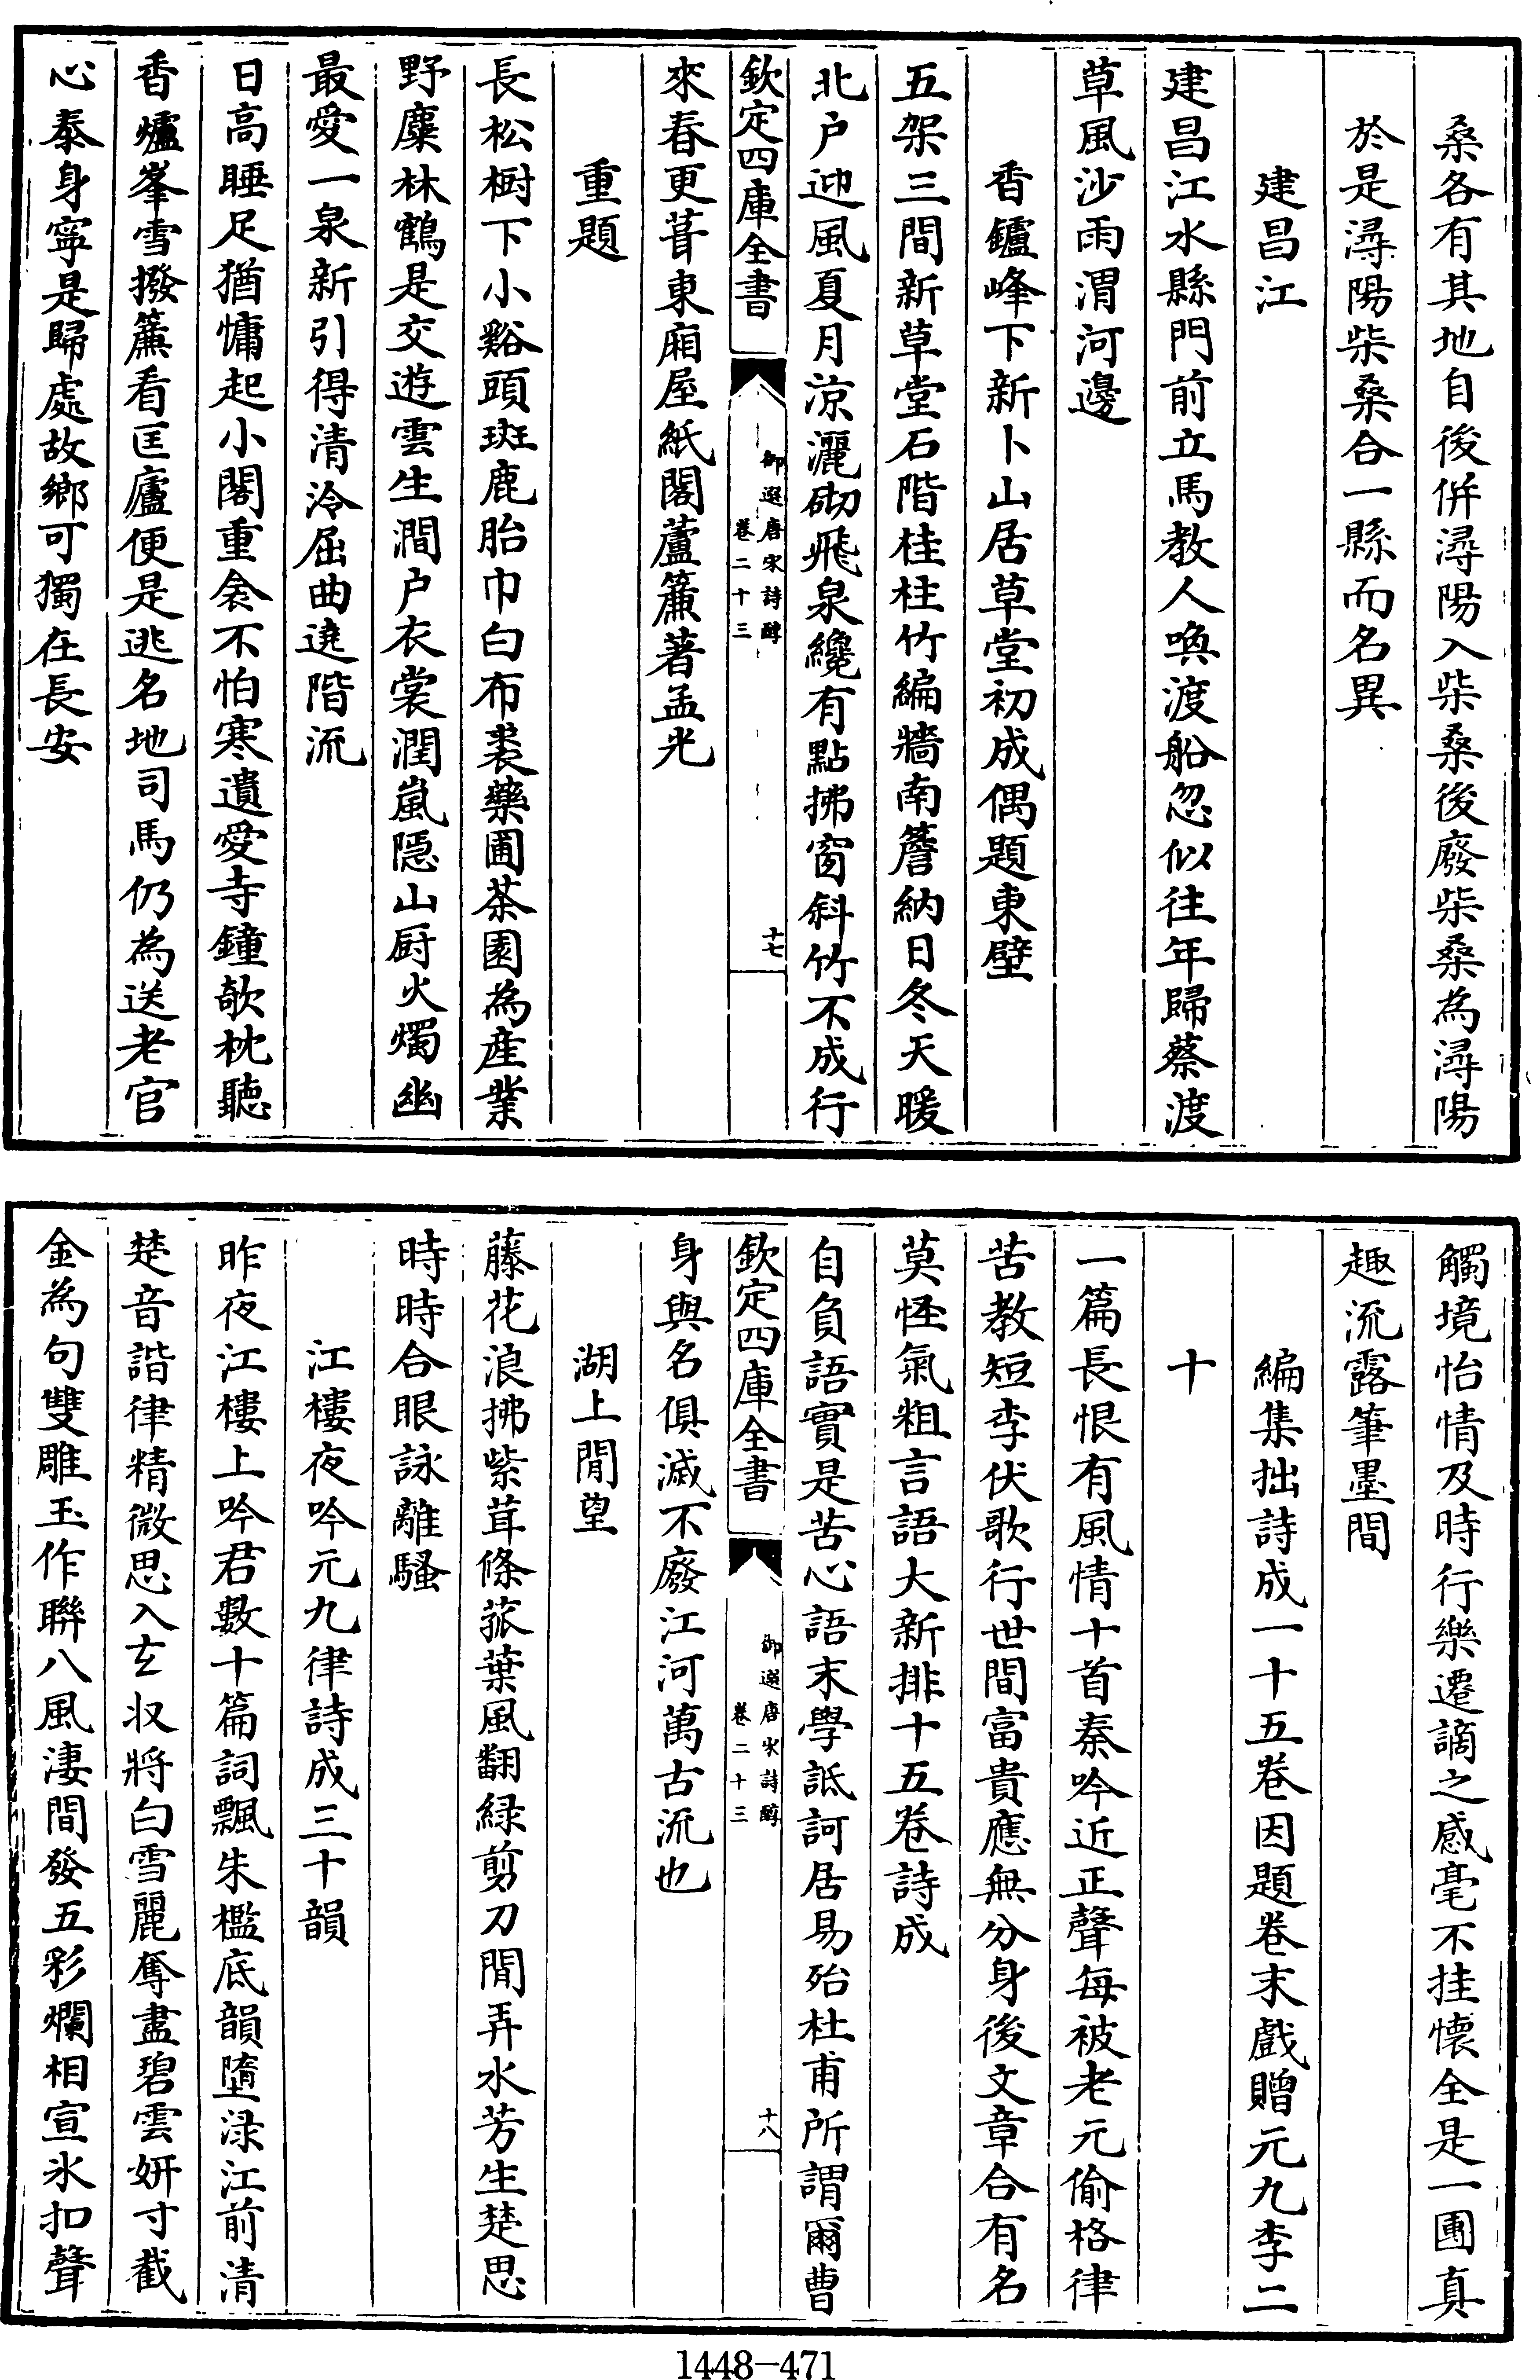 桑各有其地自後併潯陽入柴桑後廢柴桑為潯陽
於是潯陽柴桑合一縣而名異
建昌江
建昌江水縣門前立馬教人喚渡船忽似往年歸蔡渡
草風沙雨渭河邊
香鑪峰下新卜山居草堂初成偶題東壁
五架三間新草堂石階桂柱竹編牆南簷納日冬天暖
北户迎風夏月涼灑砌飛泉纔有點拂窗斜竹不成行
欽定四庫全書
御選唐宋詩醇
卷二十三
十七
來春更葺東廂屋紙閣蘆簾著孟光
重題
長松樹下小谿頭斑鹿胎巾白布裘藥圃茶園為產業
野麋林鶴是交遊雲生澗户衣裳潤嵐隱山厨火燭幽
最愛一泉新引得清泠屈曲遶階流
日高睡足猶慵起小閣重衾不怕寒遺愛寺鐘欹枕聽
香爐峯雪撥簾看匡廬便是逃名地司馬仍為送老官
心泰身寧是歸處故鄉可獨在長安
觸境怡情及時行樂遷謫之感毫不挂懷全是一團真
趣流露筆墨間
編集拙詩成一十五卷因題卷末戲贈元九李二
十
一篇長恨有風情十首秦吟近正聲每被老元偷格律
苦教短李伏歌行世間富貴應無分身後文章合有名
莫怪氣粗言語大新排十五卷詩成
自負語實是苦心語末學詆訶居易殆杜甫所謂爾曹
欽定四庫全書
御選唐宋詩醇
卷二十三
十八
身與名俱滅不廢江河萬古流也
湖上閒望
藤花浪拂紫茸條菰葉風翻緑剪刀閒弄水芳生楚思
時時合眼詠離騷
江樓夜吟元九律詩成三十韻
昨夜江樓上吟君數十篇詞飄朱檻底韻墮渌江前清
楚音諧律精微思入玄収將白雪麗奪盡碧雲妍寸截
金為句雙雕玉作聯八風淒間發五彩爛相宣氷扣聲
1448-471